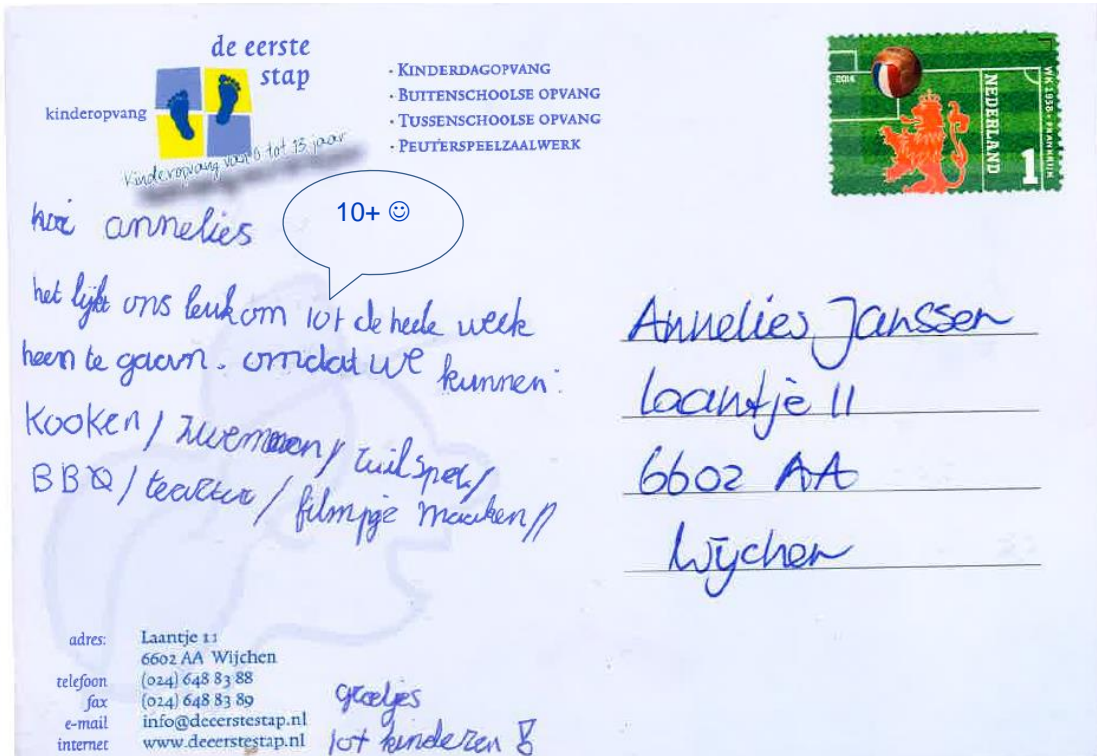 de eerste
stap
kinderopvang
Kinderopvang van 0 tot 13 jaar
· KINDERDAGOPVANG
· BUITENSCHOOLSE OPVANG
· TUSSENSCHOOLSE OPVANG
· PEUTERSPEELZAALWERK
2014
WK 1938 • FRANKRIJK
NEDERLAND
1
hoi annelies
10+ ☺
het lijkt ons leuk om 10+ de hele week
heen te gaan. omdat we kunnen:
Kooken / zwemmen /
BBQ / / filmpje maaken //
Annelies Janssen
Laantje 11
6602 AA
Wijchen
adres: Laantje 11
6602 AA Wijchen
telefoon (024) 648 83 88
fax (024) 648 83 89
e-mail info@deeerstestap.nl
internet www.deeerstestap.nl
groetjes
10+ kinderen !